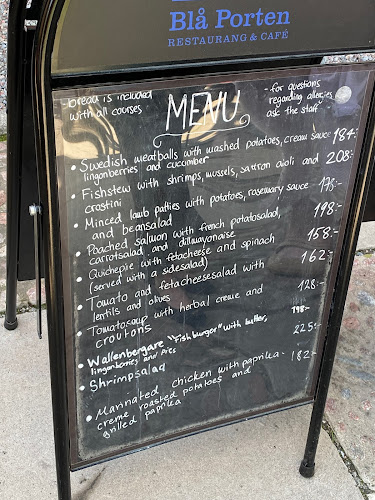 Blå Porten
RESTAURANG & CAFÉ
-bread is included
with all courses
MENU
-for questions
regarding allergies
ask the staff
• Swedish meatballs with mashed potatoes, cream sauce 184:-
lingonberries and cucumber
• Fishstew with shrimps, mussels, saffron aioli and 208:-
crostini
• Minced lamb patties with potatoes, rosemary sauce 178:-
and beansalad
• Poached salmon with french potatosalad, 198:-
carrotsalad and dillmayonnaise
• Quichepie with fetacheese and spinach 158:-
(served with a sidesalad)
• Tomato and fetacheesesalad with 162:-
lentils and olives
• Tomatosoup with herbal creme and 128:-
croutons
• Wallenbergare "Fishburger" with butter, 198:-
lingonberries and
• Shrimpsalad 225:-
• Marinated chicken with paprika- 182:-
creme, roasted potatoes and
grilled paprika